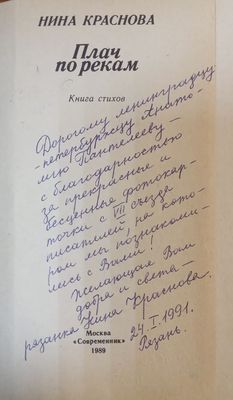 НИНА КРАСНОВА
Плач
по рекам
Книга стихов
Дорогому ленинградцу
-петербуржцу Анато-
лию Пантелееву —
с благодарностью
за прекрасные и
бесценные фотокар-
точки с VII съезда
писателей, на кото-
ром мы познакоми-
лись с Вами!
Желающая Вам
добра и света —
рязанка Нина Краснова.
24.I.1991.
Рязань.
Москва
«Современник»
1989